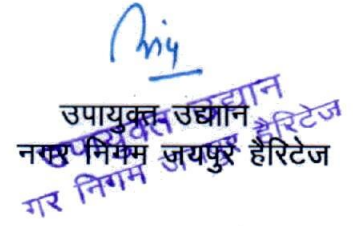 उपायुक्त उद्यान
नगर निगम जयपुर हैरिटेज
उपायुक्त उद्यान
गर निगम जयपुर हैरिटेज